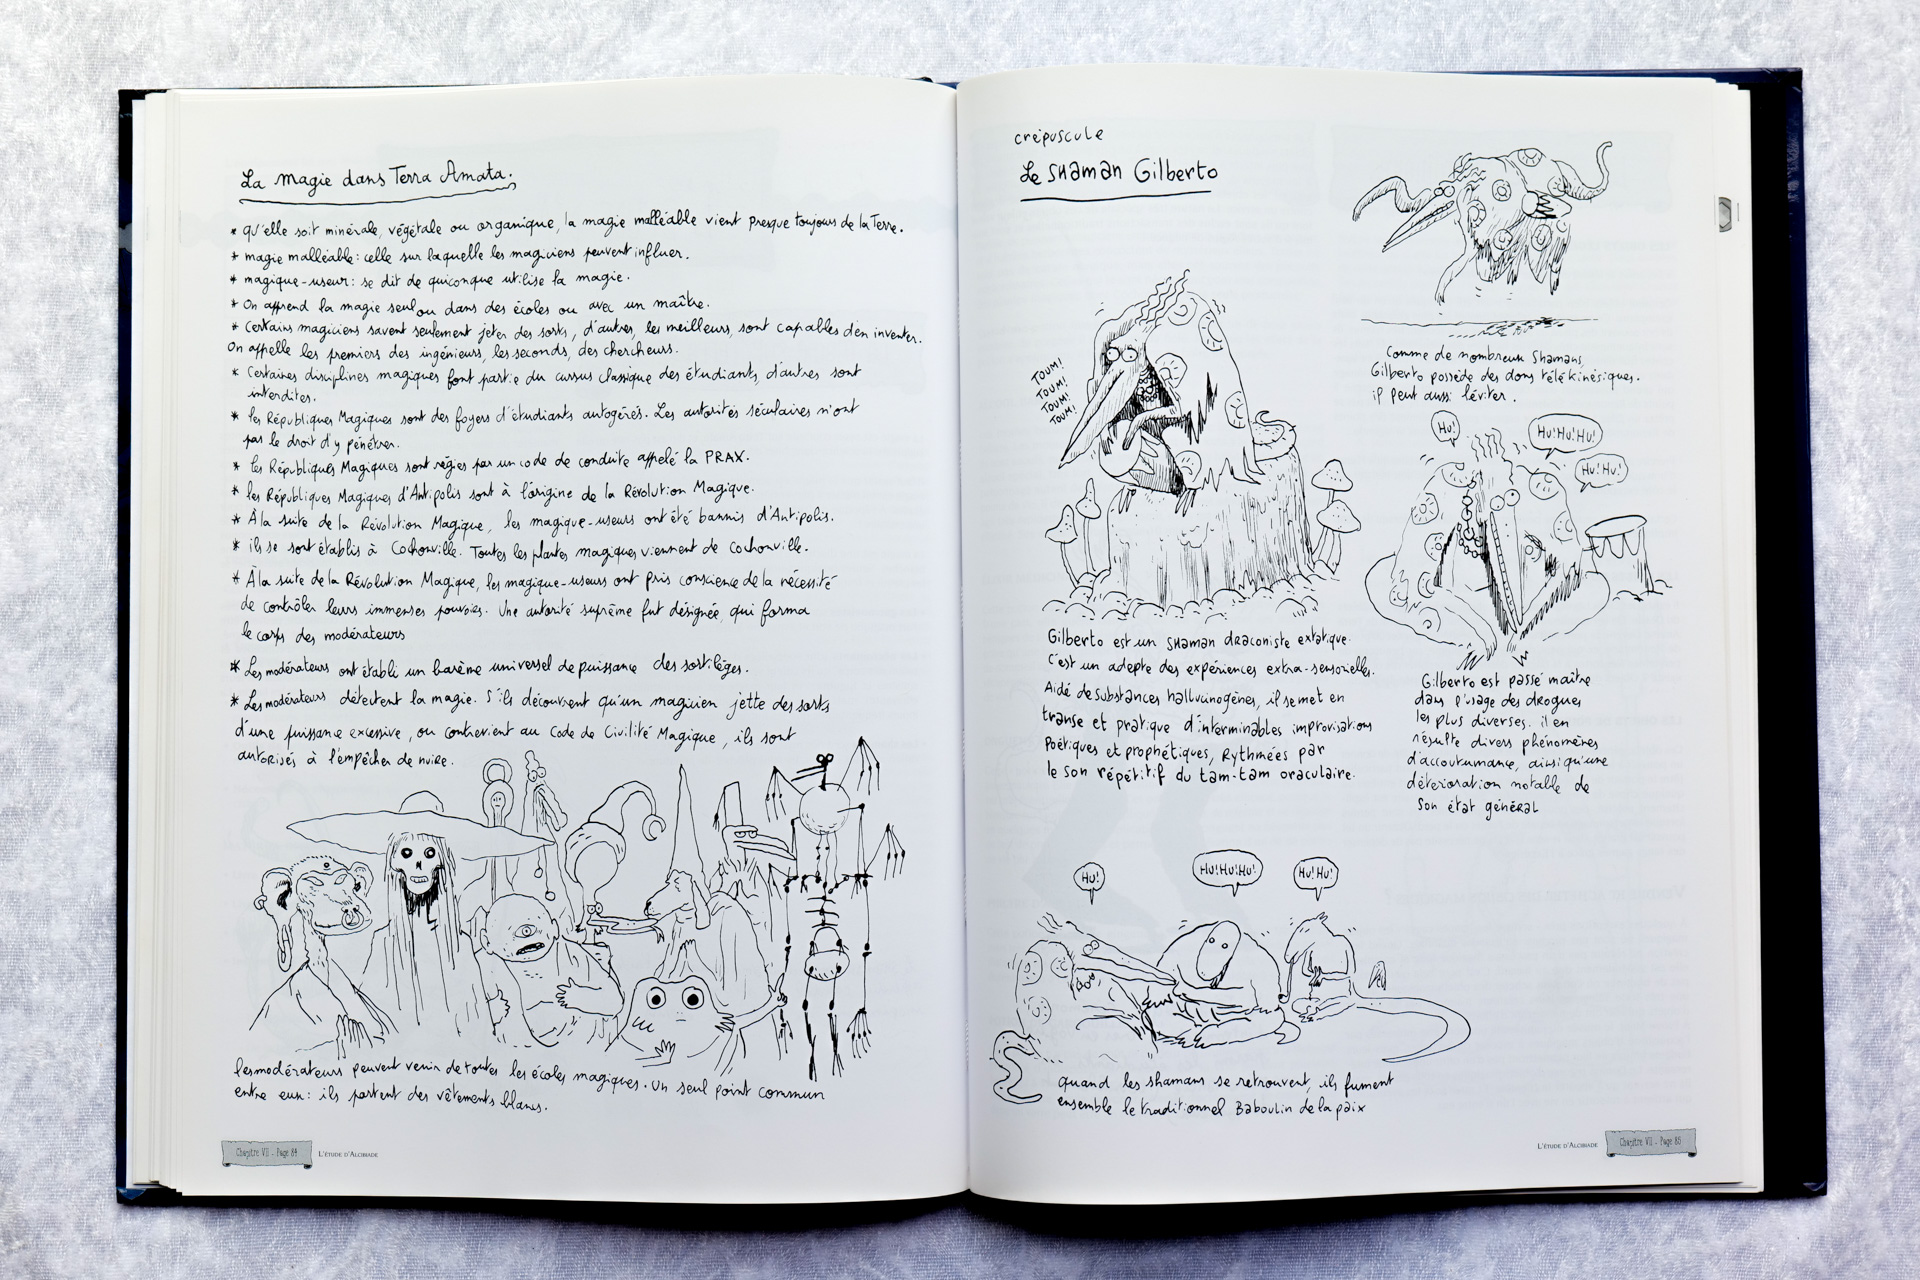 La magie dans Terra Amata.
* qu'elle soit minérale, végétale ou organique, la magie malléable vient presque toujours de la Terre.
* magie malléable : celle sur laquelle les magiciens peuvent influer.
* magique-useur : se dit de quiconque utilise la magie.
* On apprend la magie seul ou dans des écoles ou avec un maître.
* Certains magiciens savent seulement jeter des sorts, d'autres, les meilleurs, sont capables d'en inventer.
On appelle les premiers des ingénieurs, les seconds, des chercheurs.
* Certaines disciplines magiques font partie du cursus classique des étudiants, d'autres sont
interdites.
* les Républiques Magiques sont des foyers d'étudiants autogérés. Les autorités séculaires n'ont
pas le droit d'y pénétrer.
* les Républiques Magiques sont régies par un code de conduite appelé la PRAX.
* les Républiques Magiques d'Antipolis sont à l'origine de la Révolution Magique.
* À la suite de la Révolution Magique, les magique-useurs ont été bannis d'Antipolis.
* ils se sont établis à Cochonville. Toutes les plantes magiques viennent de Cochonville.
* À la suite de la Révolution Magique, les magique-useurs ont pris conscience de la nécessité
de contrôler leurs immenses pouvoirs. Une autorité suprême fut désignée, qui forma
le corps des modérateurs
* Les modérateurs ont établi un barème universel de puissance des sortilèges.
* Les modérateurs détectent la magie. S'ils découvrent qu'un magicien jette des sorts
d'une puissance excessive, ou contrevient au Code de Civilité Magique, ils sont
autorisés à l'empêcher de nuire.
les modérateurs peuvent venir de toutes les écoles magiques. Un seul point commun
entre eux : ils portent des vêtements blancs.
Chapitre VII - Page 84
L'ÉTUDE D'ALCIBIADE
crépuscule
Le Shaman Gilberto
TOUM!
TOUM!
TOUM!
TOUM!
Comme de nombreux Shamans,
Gilberto possède des dons télékinésiques.
il peut aussi léviter.
HU!
HU!HU!HU!
HU!HU!
Gilberto est un shaman draconiste extatique.
C'est un adepte des expériences extra-sensorielles.
Aidé de substances hallucinogènes, il se met en
transe et pratique d'interminables improvisations
Poétiques et prophétiques, Rythmées par
le son répétitif du tam-tam oraculaire.
Gilberto est passé maître
dans l'usage des drogues
les plus diverses. il en
résulte divers phénomènes
d'accoutumance, ainsi qu'une
détérioration notable de
son état général
HU!
HU!HU!HU!
HU!HU!
quand les shamans se retrouvent, ils fument
ensemble le traditionnel Baboulin de la paix
L'ÉTUDE D'ALCIBIADE
Chapitre VII - Page 85